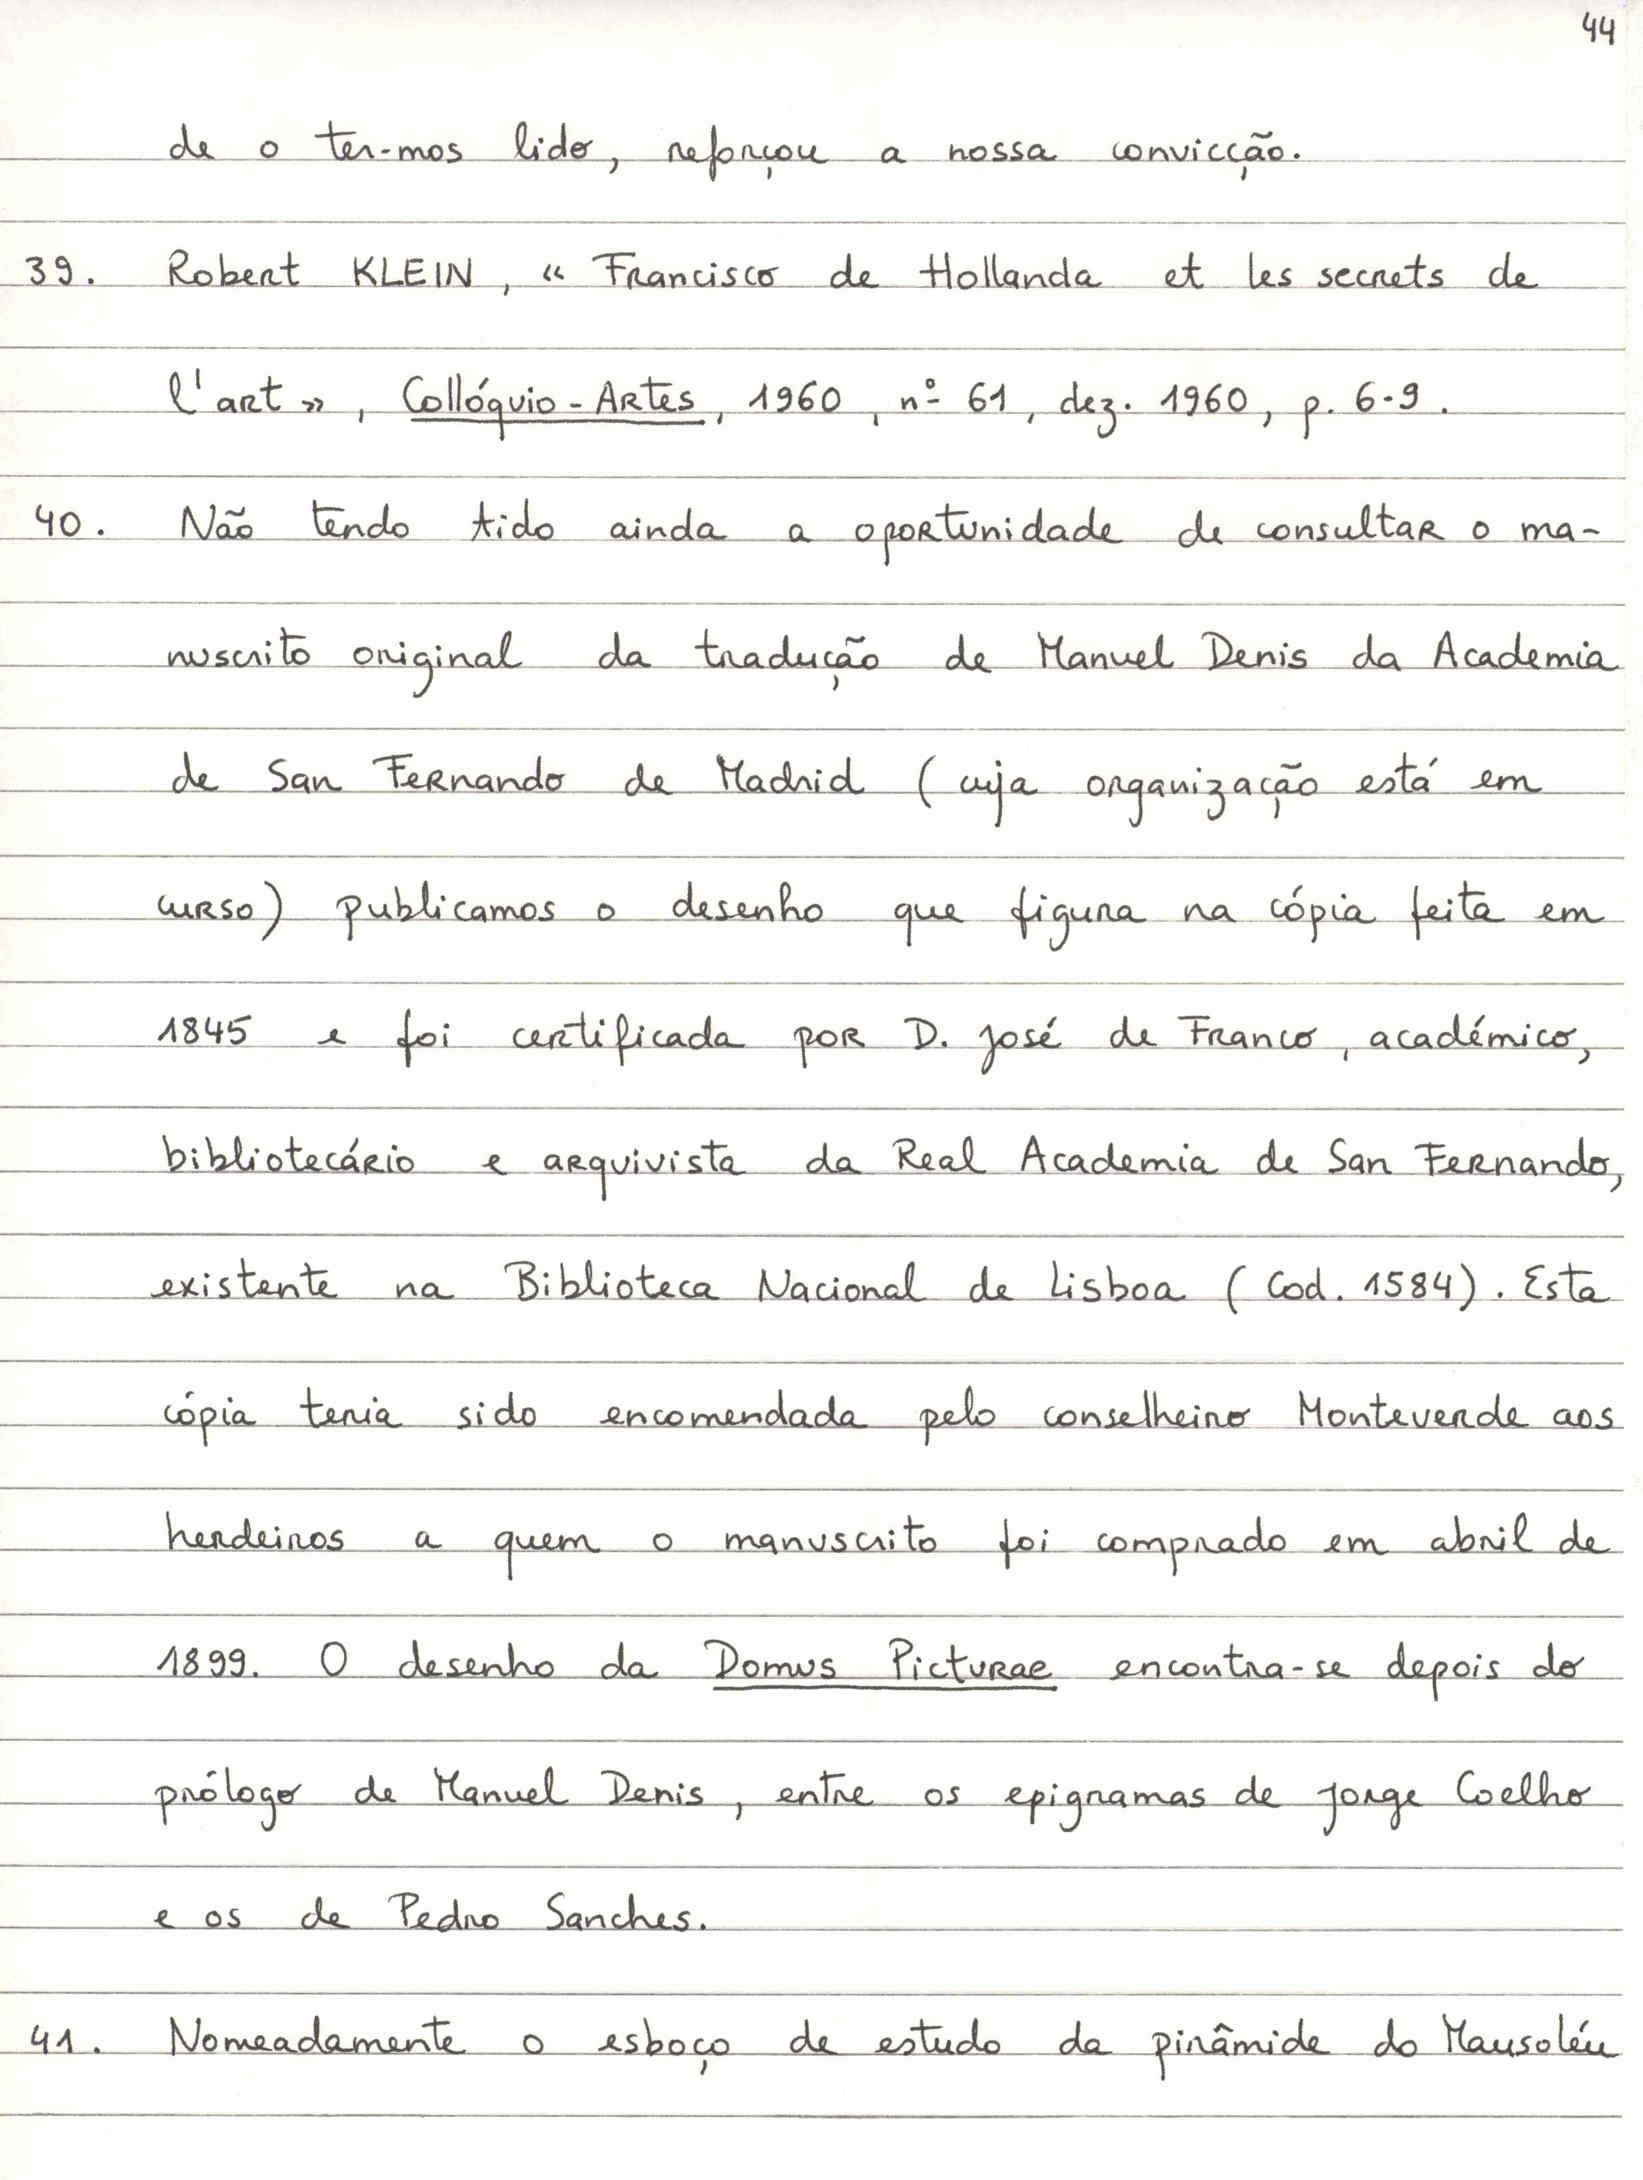 44
de o ter-mos lido, reforçou a nossa convicção.
39. Robert KLEIN, « Francisco de Hollanda et les secrets de
l'art », Collóquio-Artes, 1960, nº 61, dez. 1960, p. 6-9.
40. Não tendo tido ainda a oportunidade de consultar o ma-
nuscrito original da tradução de Manuel Denis da Academia
de San Fernando de Madrid (cuja organização está em
curso) publicamos o desenho que figura na cópia feita em
1845 e foi certificada por D. José de Franco, académico,
bibliotecário e arquivista da Real Academia de San Fernando,
existente na Biblioteca Nacional de Lisboa (Cod. 1584). Esta
cópia teria sido encomendada pelo conselheiro Monteverde aos
herdeiros a quem o manuscrito foi comprado em abril de
1899. O desenho da Domus Picturae encontra-se depois do
prólogo de Manuel Denis, entre os epigramas de Jorge Coelho
e os de Pedro Sanches.
41. Nomeadamente o esboço de estudo da pirâmide do Mausoléu